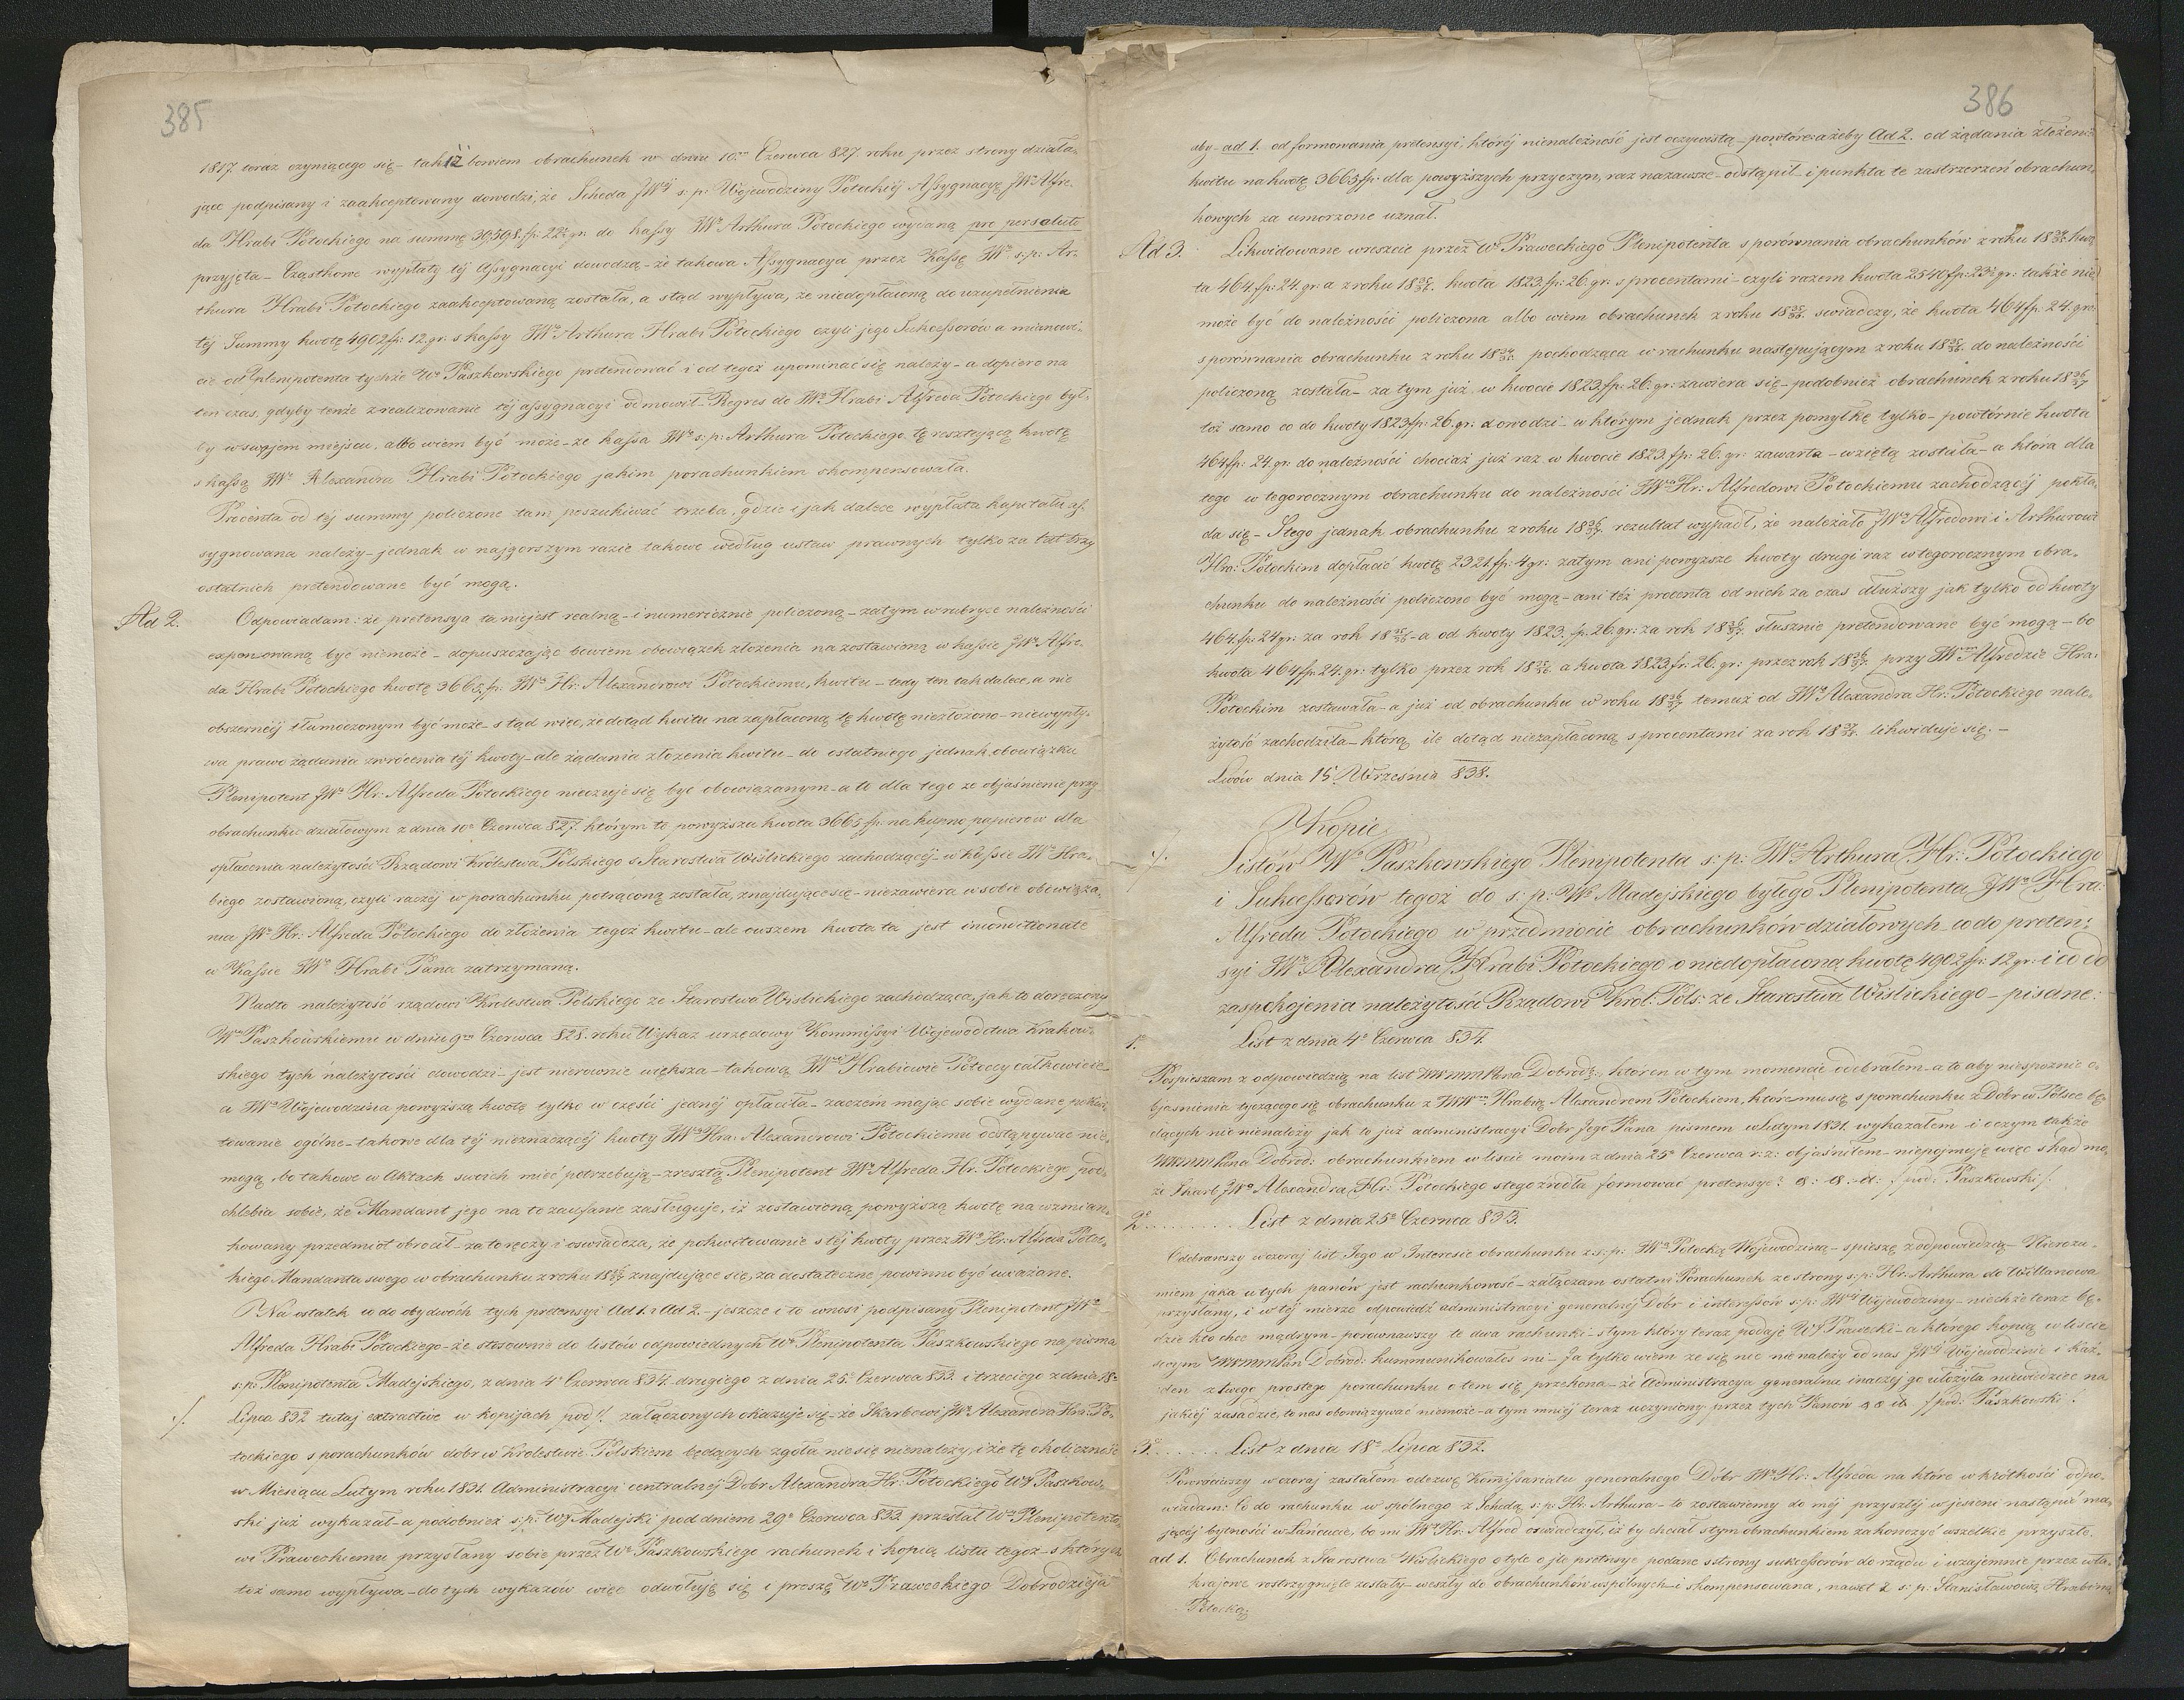 385
1817 teraz czyniącego się – tak iż bowiem obrachunek w dniu 10go Czerwca 827. roku przez strony działa-
jące podpisany i zaakceptowany dowodzi, że Scheda JWej s: p: Wojewodziny Potockiéj Assygnacyę JWo Alfre-
da Hrabi Potockiego na summę 30,598.fp: 22 gr: do kassy JWo Arthura Potockiego wydaną pro persoluto
przyjęta – Cząstkowe wypłaty téj Assygnacyi dowodzą – że takowa Assygnacya przez Kassę JWo s: p: Ar-
thura Hrabi Potockiego zaakceptowaną została, a stąd wypływa, że niedopłaconą do uzupełnienia
téj Summy kwotę 4902fp: 12.gr: s kassy JWo Arthura Hrabi Potockiego czyli jego Sukcessorów a mianowi-
cie od Plenipotenta tychże Wo Paszkowskiego pretendować i od tegoż upominać się należy – a dopiero na
ten czas, gdyby tenże zrealizowanie téj assygnacyi odmówił – Regres do JWo Hrabi Alfreda Potockiego był-
by w swojem miejscu, albo wiem być może – że kassa JWo s: p: Arthura Potockiego tę resztującą kwotę
s kassą JWo Alexandra Hrabi Potockiego jakim porachunkiem skompensowała.
Procenta od téj summy policzone tam poszukiwać trzeba, gdzie i jak dalece wypłata kapitału as-
sygnowana należy – jednak w najgorszym razie takowe według ustaw prawnych tylko za lat trzy
ostatnich pretendowane być mogą.
Ad 2. Odpowiadam: że pretensya ta niejest realną – i numerycznie policzoną – zatym w rubryce należności
expensowaną być niemoże – dopuszczając bowiem obowiązek złożenia na zostawioną w kassie JWo Alfre-
da Hrabi Potockiego kwotę 3665.fp: JWo Hr: Alexandrowi Potockiemu, kwitu – tedy ten tak dalece, a nie
obszerniéj tłumaczonym być może – s tąd więc, że dotąd kwitu na zapłaconą tę kwotę niezłożono – niewypły-
wa prawo żądania zwrócenia téj kwoty – ale żądania złożenia kwitu – do ostatniego jednak obowiązku
Plenipotent JWo Hr: Alfreda Potockiego nieczuje się być obowiązanym – a to dla tego że objaśnienie przy
obrachunku działowym z dnia 10o Czerwca 827. którym to powyższa kwota 3665 fp: na kupno papierów dla
spłacenia należytości Rządowi Królestwa Polskiego s Starostwa Wiślickiego zachodzącéj – w kassie JWo Hra-
biego zostawioną, czyli raczéj w porachunku potrąconą została, znajdujące się – niezawiera w sobie obowiąza-
nia JWo Hr: Alfreda Potockiego do złożenia tegoż kwitu – ale owszem kwota ta jest inconditionate
w Kassie JWo Hrabi Pana zatrzymaną.
Nadto należytość rządowi Królestwa Polskiego ze Starostwa Wislickiego zachodząca, jak to doręczony
Wo Paszkowskiemu w dniu 9go Czerwca 828. roku Wykaz urzędowy Kommissyi Województwa Krakow-
skiego tych należytości dowodzi – jest nierownie większa – takową JWni Hrabiowie Potoccy całkowicie
a JWa Wojewodzina powyższą kwotę tylko w części jednéj opłaciła – zaczém mając sobie wydane pokwi-
towanie ogólne – takowe dla téj nieznaczącéj kwoty JWo Hra: Alexandrowi Potockiemu odstępywać nie-
mogą, bo takowe w Aktach swoich mieć potrzebują – zresztą Plenipotent JWo Alfreda Hr: Potockiego, pod-
chlebia sobie, że Mandant jego na to zaufanie zasługuje, iż zostawioną powyższą kwotę na wzmian-
kowany przedmiot obrócił – za to ręczy i oswiadcza, że pokwitowanie s téj kwoty przez JWo Hr: Alfreda Potoc-
kiego Mandanta swego w obrachunku z roku 18 26/27 znajdujące się, za dostateczne powinno być uważane.
Na ostatek co do obydwóch tych pretensyi Ad 1. i Ad 2. – jeszcze i to wnosi podpisany Plenipotent JWo
Alfreda Hrabi Potockiego – że stosownie do listów odpowiednych Wo Plenipotenta Paszkowskiego na pisma
s: p: Plenipotenta Madejskiego, z dnia 4o Czerwca 834. drugiego z dnia 25o Czerwca 833. i trzeciego z dnia 18o
./. Lipca 832 tutaj extractive w kopijach pod ./. załączonych okazuje się – że Skarbowi JWo Alexandra Hra: Po-
tockiego s porachunków dóbr w Królestwie Polskiem będących zgoła nic się nienależy, i że tę okoliczność
w Miesiącu Lutym roku 1831. Administracyi centralnéj Dobr Alexandra Hr: Potockiego WJ Paszkow-
ski już wykazał – a podobnież s: p: WJ Madejski pod dniem 29o Czerwca 833. przesłał Wo Plenipotento-
wi Praweckiemu przysłany sobie przez Wo Paszkowskiego rachunek i kopię listu tegoż – s których
toż samo wypływa – do tych wykazów więc odwołuję się i proszę Wo Praweckiego Dobrodzieja
386
aby – ad 1. od formowania pretensyi, któréj nienależność jest oczywistą – powtóre: ażeby Ad 2. od żądania złożenia
kwitu na kwotę 3665fp: dla powyższych przyczyn, raz nazawsze – odstąpił – i punkta te zastrzeżeń obrachun-
kowych za umorzone uznał.
Ad 3. Likwidowane wreszcie przez Wo Praweckiego Plenipotenta s porównania obrachunków z roku 18 24/25 kwo-
ta 464.fp: 24. gr. a z roku 18 25/26. kwota 1823.fp: 26. gr: s procentami – czyli razem kwota 2540fp: 23 gr: także nie
może być do należności policzona albo wiem obrachunek z roku 18 25/26. swiadczy, że kwota 464fp. 24. gr:
s porównania obrachunku z roku 18 24/25. pochodząca w rachunku następującym z roku 18 25/26. do należności
policzoną została – za tym już w kwocie 1823.fp: 26. gr: zawiera się – podobnież obrachunek z roku 18 26/27
toż samo co do kwoty 1823fp: 26. gr: dowodzi – w którym jednak przez pomyłkę tylko – powtórnie kwota
464fp: 24. gr: do należności chociaż już raz w kwocie 1823. fp: 26. gr: zawarta – wziętą została – a która dla
tego w tegorocznym obrachunku do należności JWo Hr: Alfredowi Potockiemu zachodzącéj pokła-
da się – S tego jednak obrachunku z roku 18 26/27. rezultat wypadł, że należało JWo Alfredowi i Arthurowi
Hra: Potockim dopłacić kwotę 2321.fp: 4gr: zatym ani powyższe kwoty drugi raz w tegorocznym obra-
chunku do należności policzone być mogą – ani téż procenta od nich za czas dłuższy jak tylko od kwoty
464.fp: 24gr: za rok 18 25/26 – a od kwoty 1823. fp: 26. gr: za rok 18 26/27. słusznie pretendowane być mogą – bo
kwota 464fp: 24. gr: tylko przez rok 18 25/26 a kwota 1823fr: 26. gr: przez rok 18 26/27. przy JWm Alfredzie Hra:
Potockim zostawała – a już od obrachunku w roku 18 26/27 temuż od JWo Alexandra Hr: Potockiego nale-
żytość zachodziła – którą ile dotąd niezapłaconą s procentami za rok 18 27/28. likwiduje się. –
Lwów dnia 15. Września 838.
Kopie
./. Listów Wo Paszkowskiego Plenipotenta s: p: JWo Arthura Hr: Potockiego
i Sukcessorów tegoż do s: p: Wo Madejskiego byłego Plenipotenta JWo Hra:
Alfreda Potockiego w przedmiocie obrachunków działowych co do preten-
syi JWo Alexandra Hrabi Potockiego o niedopłaconą kwotę 4902.fp: 12. gr: i co do
zaspokojenia należytości Rządowi Król: Pols: ze Starostwa Wislickiego – pisane:
1o List z dnia 4o Czerwca 834.
Pospieszam z odpowiedzią na list WWMM Pana Dobrodz:, któren w tym momencie odebrałem – a to aby niespoznic o-
bjasnienia tyczącego się obrachunku z JWm Hrabią Alexandrem Potockiem, któremu się s porachunku z Dóbr w Polsce bę-
dących nic nienależy jak to już administracyi Dobr Jego Pana pismem w lutym 1831. wykazałem i o czym także
WWMM Pana Dobrod: obrachunkiem w liscie moim z dnia 25o Czerwca r: z: objaśniłem – niepojmuję więc skąd mo-
że Skarb JWo Alexandra Hr: Potockiego s tego źródła formować pretensye? &: &: &: / pod: Paszkowski /.
2o ........ List z dnia 25o Czerwca 833.
Odebrawszy wczoraj list Jego w Interesie obrachunku z s: p: JWą Potocką Wojewodziną – spieszę z odpowiedzią – Nierozu-
miem jaka u tych panów jest rachunkowość – załączam ostatni Porachunek ze strony s: p: Hr: Arthura do Willanowa
przysłany, i w téj mierze odpowiedź administracyi generalnéj Dobr i interessów s: p: JWej Wojewodziny – niechże teraz bę-
dzie kto chce mądrym – porównawszy te dwa rachunki – s tym który teraz podaje WJ Prawecki – a którego kopią w liscie
swym WWMM Pan Dobrod: kummunikowałeś mi – Ja tylko wiem że się nic nienależy od nas JWej Wojewodzinie i każ-
den z twego prostego porachunku o tem się przekona – że Administracya generalna inaczéj go ułożyła niewiedzieć na
jakiéj zasadzie, to nas obowiązywać niemoże – a tym mniéj teraz uczyniony przez tych Panów &&& / pod: Paszkowski /
3o ...... List z dnia 18o Lipca 832.
Powróciwszy wczoraj zastałem odezwę Komissariatu generalnego Dóbr JWo Hr: Alfreda na które w krótkości odpo-
wiadam: Co do rachunku w spólnego z Schedą s: p: Hr: Arthura – to zostawiemy do méj przyszłéj w jesieni nastąpić ma-
jącéj bytności w Łańcucie, bo mi JW Hr: Alfred oswiadczył, iż by chciał s tym obrachunkiem zakończyć wszelkie przyszłe.
ad 1. Obrachunek z Starostwa Wislickiego o tyle o ile pretensye podane s strony sukcessorów do rządu i wzajemnie przez wła-
krajowe rostrzygnięte zostały – weszły do obrachunków wspólnych – i skompensowana, nawet z s: p: Stanisławową Hrabiną
Potocką;